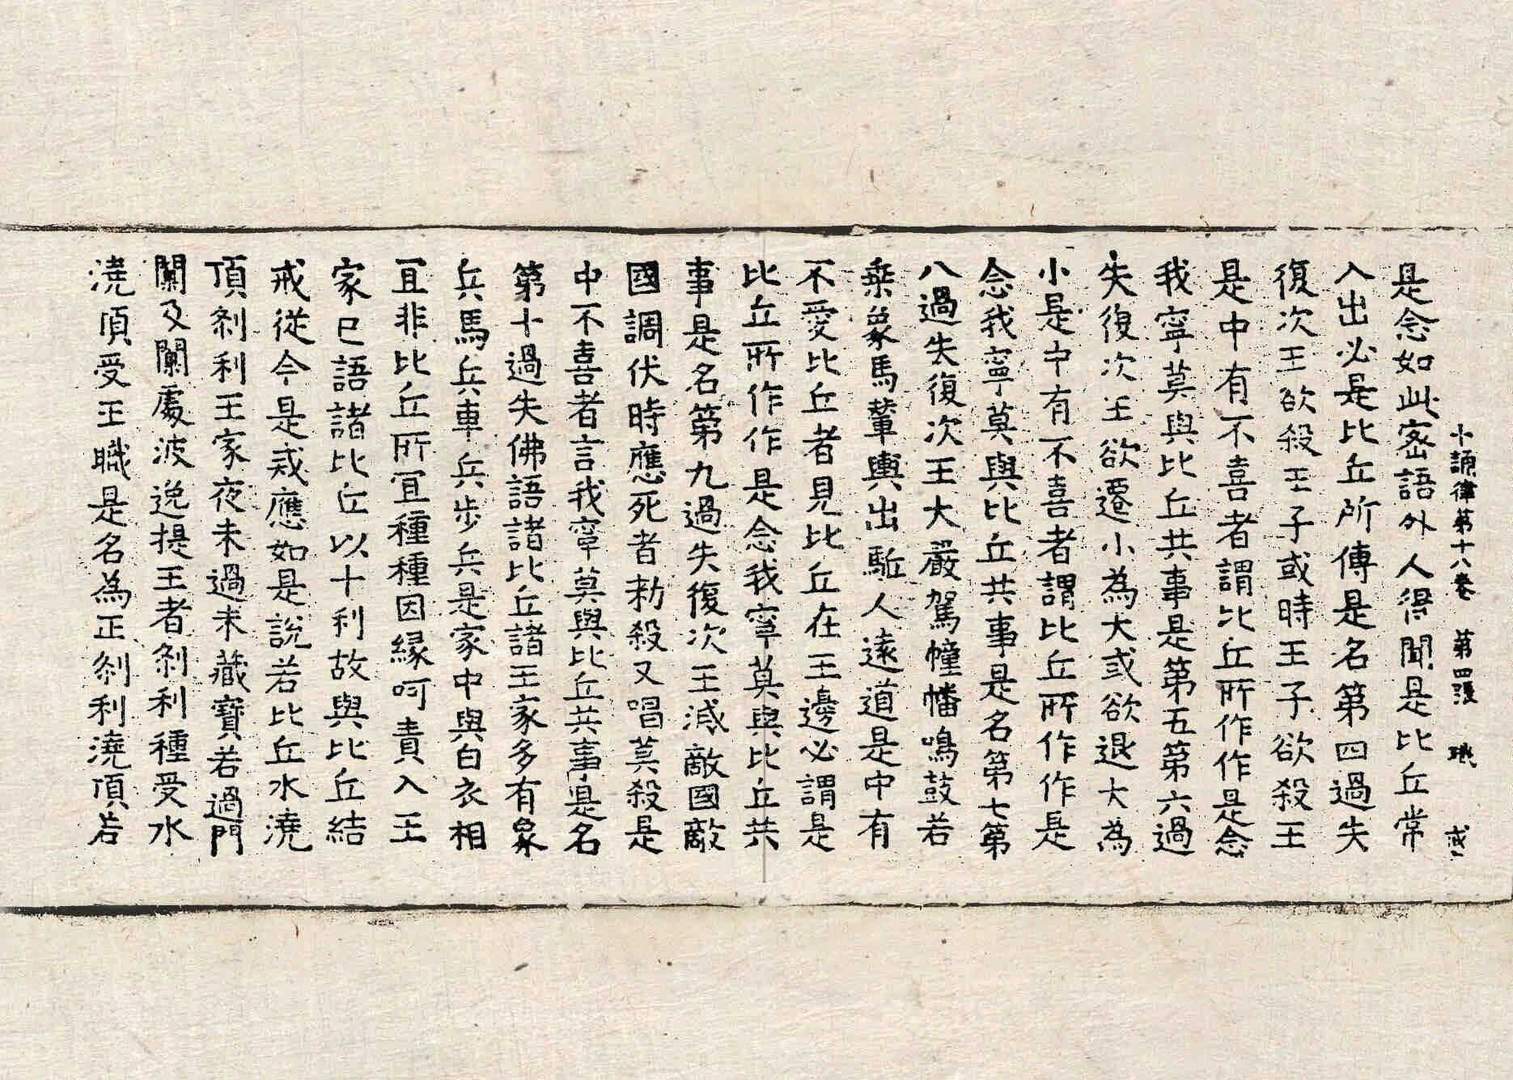 十誦律第十八卷 第四張
是念如此密語外人得聞是比丘常
入出必是比丘所傳是名第四過失
復次王欲殺王子或時王子欲殺王
是中有不喜者謂比丘所作作是念
我寧莫與比丘共事是第五第六過
失復次王欲遷小為大或欲退大為
小是中有不喜者謂比丘所作作是
念我寧莫與比丘共事是名第七第
八過失復次王大嚴駕幢幡鳴鼓若
乗象馬輦輿出駈人遠道是中有
不愛比丘者見比丘在王邊必謂是
比丘所作作是念我寧莫與比丘共
事是名第九過失復次王滅敵國敵
國調伏時應死者勑殺又唱莫殺是
中不喜者言我寧莫與比丘共事是名
第十過失佛語諸比丘諸王家多有象
兵馬兵車兵步兵是家中與白衣相
冝非比丘所冝種種因緣呵責入王
家已語諸比丘以十利故與比丘結
戒從今是戒應如是說若比丘水澆
頂刹利王家夜未過未藏寶若過門
闑及闑處波逸提王者刹利種受水
澆頂受王職是名為王刹利澆頂若